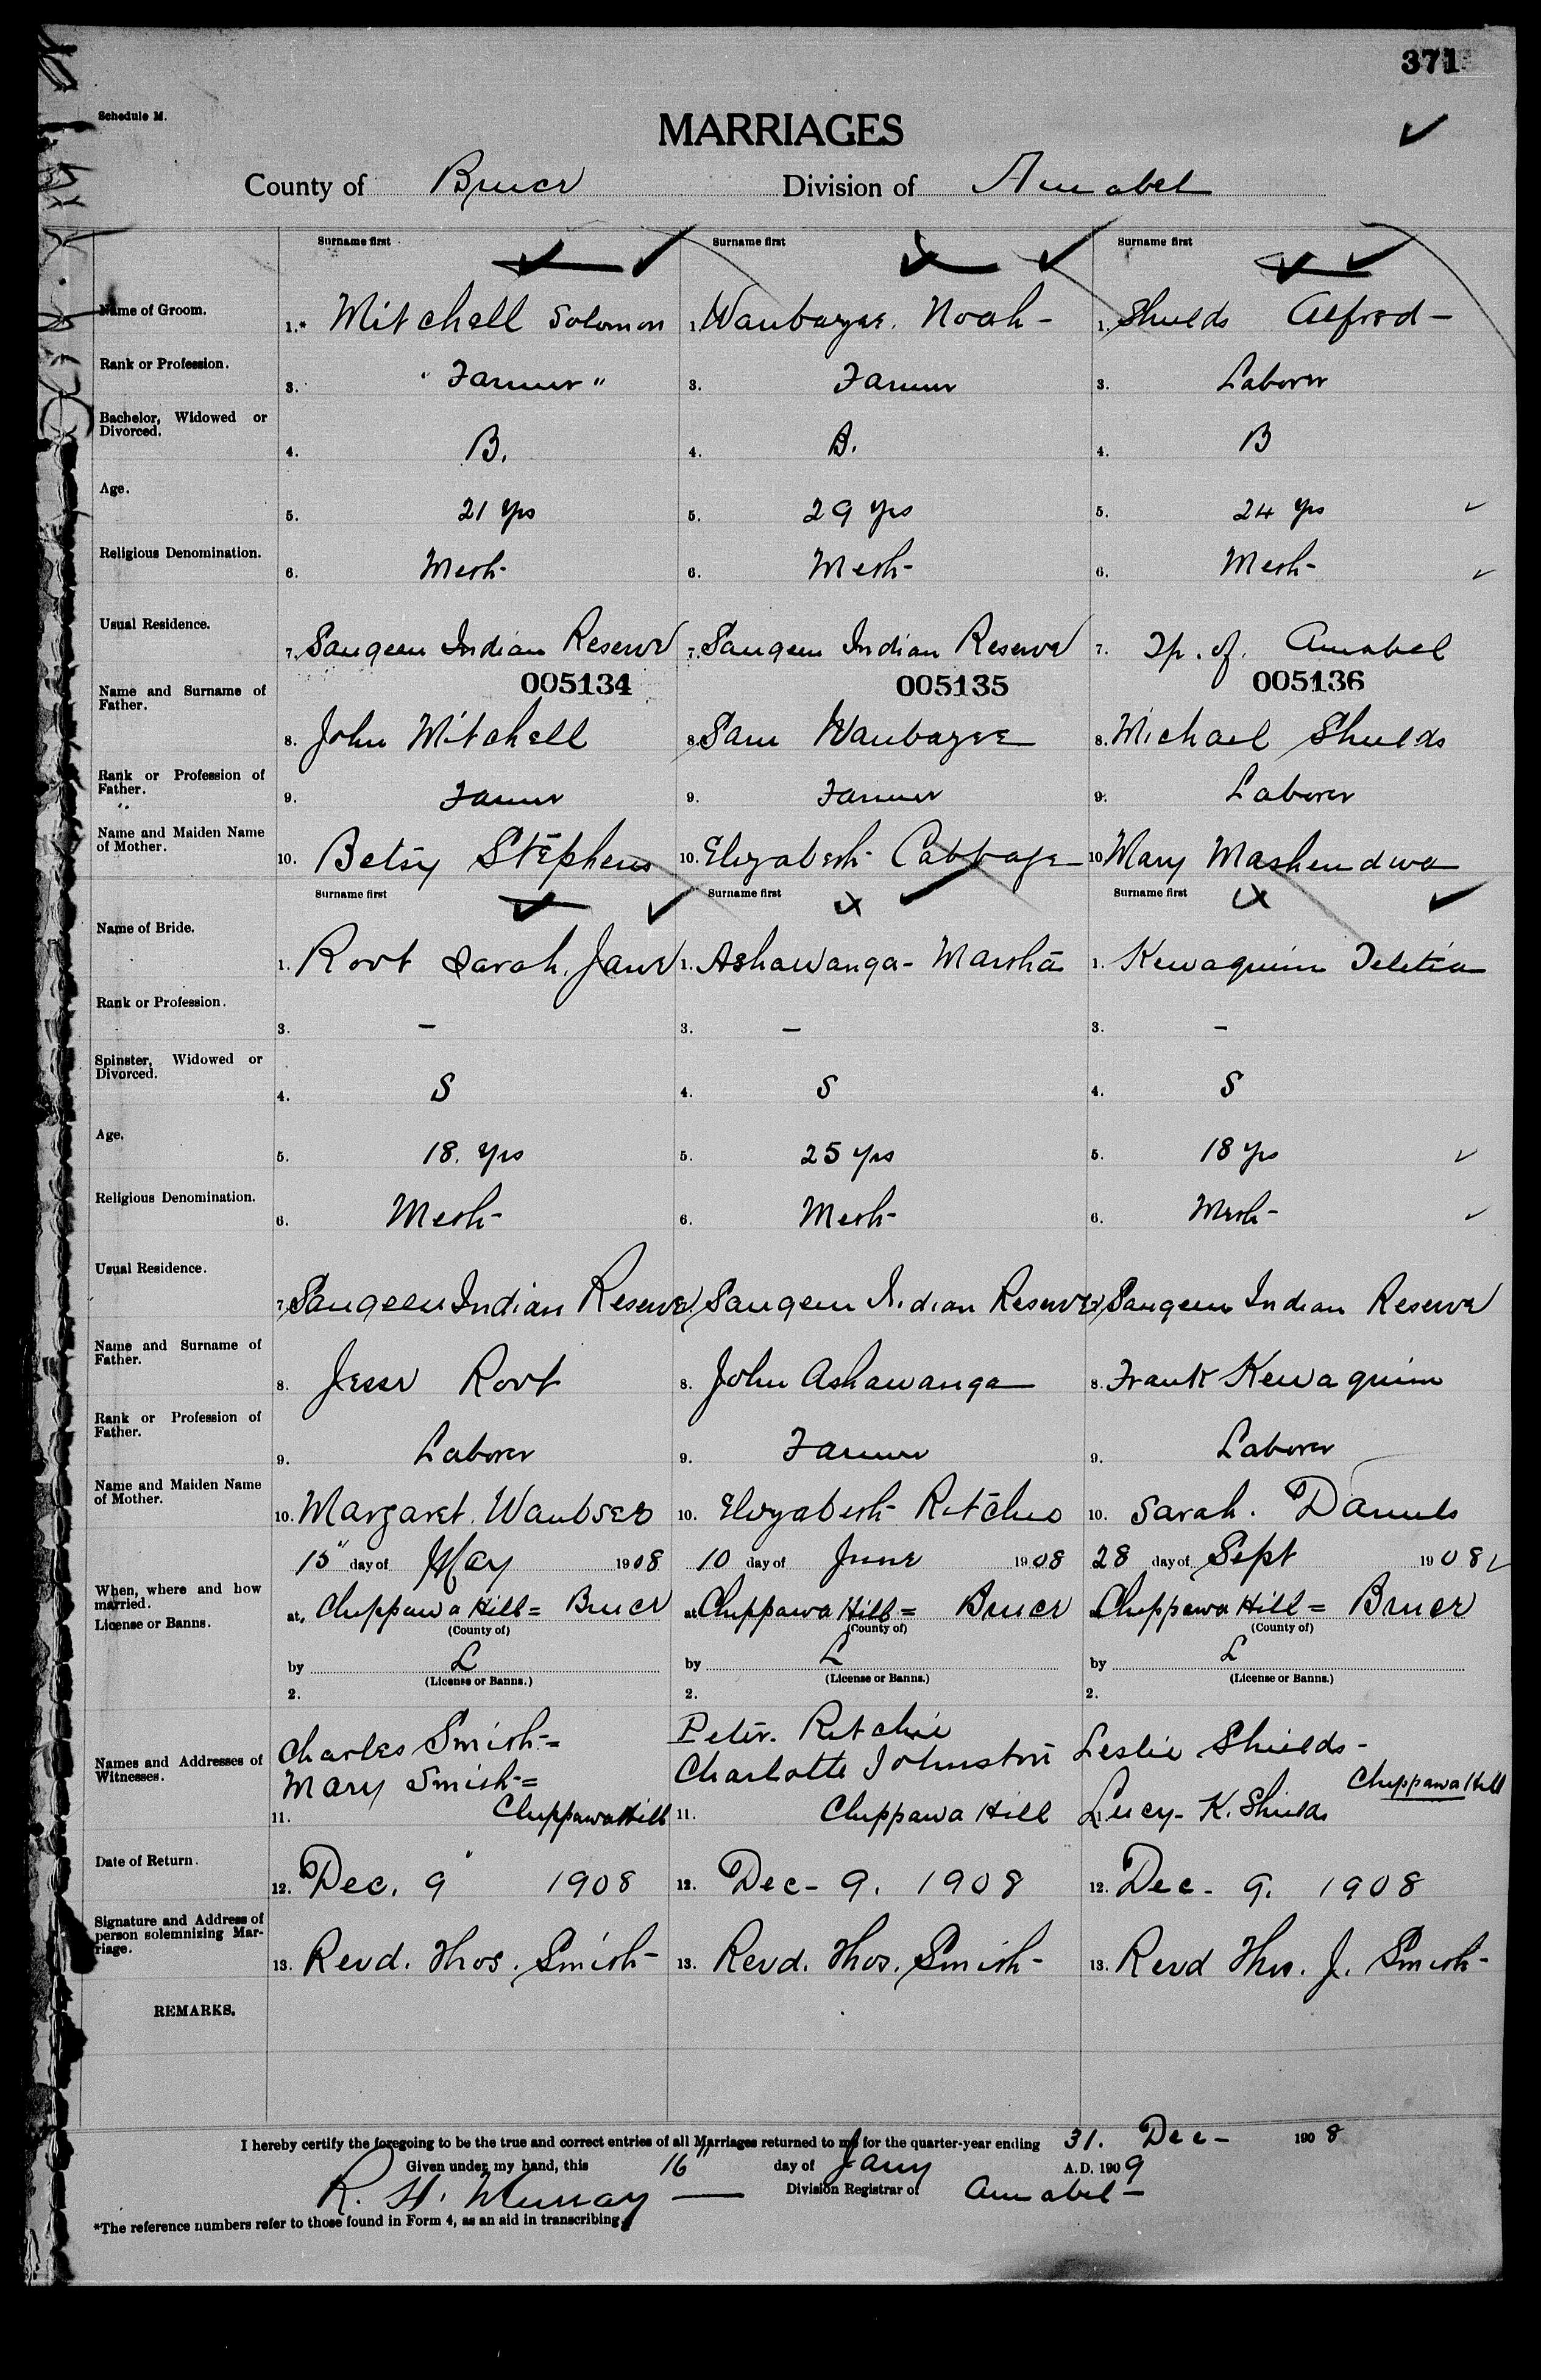 371
Schedule M.
MARRIAGES
County of Bruce Division of Amabel
Surname first Surname first Surname first
Name of Groom. 1.* Mitchell Solomon 1. Waubagee. Noah - 1. Shields Alfred -
Rank or Profession. 3. "Farmer" 3. Farmer 3. Laborer
Bachelor, Widowed or Divorced. 4. B. 4. B. 4. B
Age. 5. 21 yrs 5. 29 yrs 5. 24 yrs
Religious Denomination. 6. Meth- 6. Meth- 6. Meth-
Usual Residence. 7. Saugeen Indian Reserve 7. Saugeen Indian Reserve 7. Tp. of. Amabel
005134 005135 005136
Name and Surname of Father. 8. John Mitchell 8. Sam Waubagee 8. Michael Shields
Rank or Profession of Father. 9. Farmer 9. Farmer 9. Laborer
Name and Maiden Name of Mother. 10. Betsy Stephens 10. Elizabeth Cabbage 10. Mary Mashendwa
Surname first Surname first Surname first
Name of Bride. 1. Root Sarah, Jane 1. Ashawanga- Martha 1. Kewaquim Teletia
Rank or Profession. 3. - 3. - 3. -
Spinster, Widowed or Divorced. 4. S 4. S 4. S
Age. 5. 18. yrs 5. 25 yrs 5. 18 yrs
Religious Denomination. 6. Meth- 6. Meth- 6. Meth-
Usual Residence. 7. Saugeen Indian Reserve 7. Saugeen Indian Reserve 7. Saugeen Indian Reserve
Name and Surname of Father. 8. Jesse Root 8. John Ashawanga 8. Frank Kewaquim
Rank or Profession of Father. 9. Laborer 9. Farmer 9. Laborer
Name and Maiden Name of Mother. 10. Margaret. Waubsee 10. Elizabeth Ritchie 10. Sarah. Daniels
15" day of May 1908 10 day of June 1908 28 day of Sept 1908
When, where and how married. at, Chippawa Hill = Bruce at Chippawa Hill = Bruce at Chippawa Hill = Bruce
License or Banns. (County of) (County of) (County of)
by L by L by L
(License or Banns.) (License or Banns.) (License or Banns.)
2. 2. 2.
Names and Addresses of Witnesses. Charles Smith = Peter. Ritchie Leslie Shields -
Mary Smith = Charlotte Johnston Chippawa Hill
11. Chippawa Hill 11. Chippawa Hill Lucy- K. Shields
Date of Return. 12. Dec. 9" 1908 12. Dec- 9. 1908 12. Dec- 9. 1908
Signature and Address of person solemnizing Marriage. 13. Revd. Thos. Smith- 13. Revd. Thos. Smith- 13. Revd Thos. J. Smith-
REMARKS.
I hereby certify the foregoing to be the true and correct entries of all Marriages returned to me for the quarter-year ending 31. Dec- 1908
Given under my hand, this 16" day of Jany A.D. 1909
R. H. Murray Division Registrar of Amabel -
*The reference numbers refer to those found in Form 4, as an aid in transcribing.